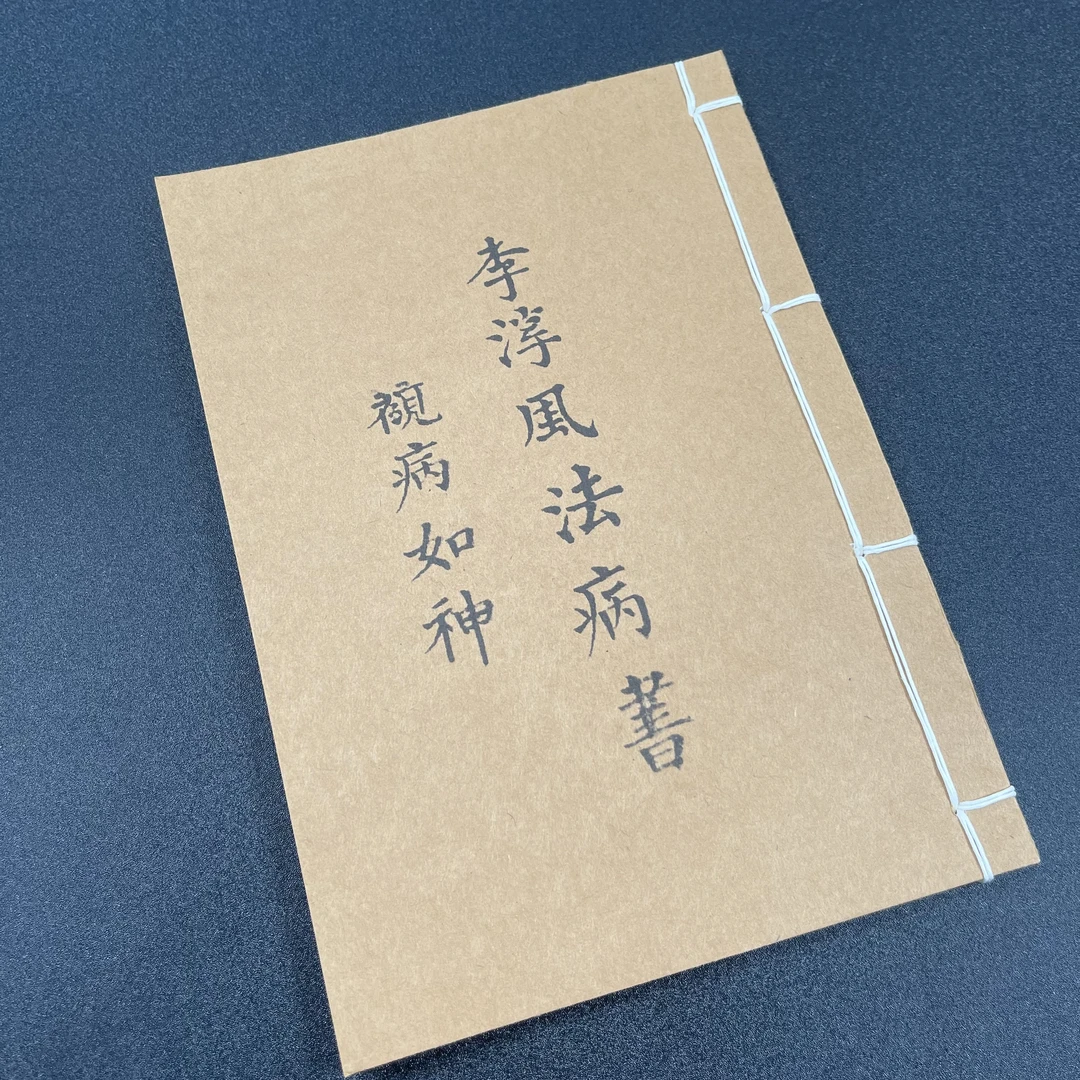 李淳風法病書
觀病如神